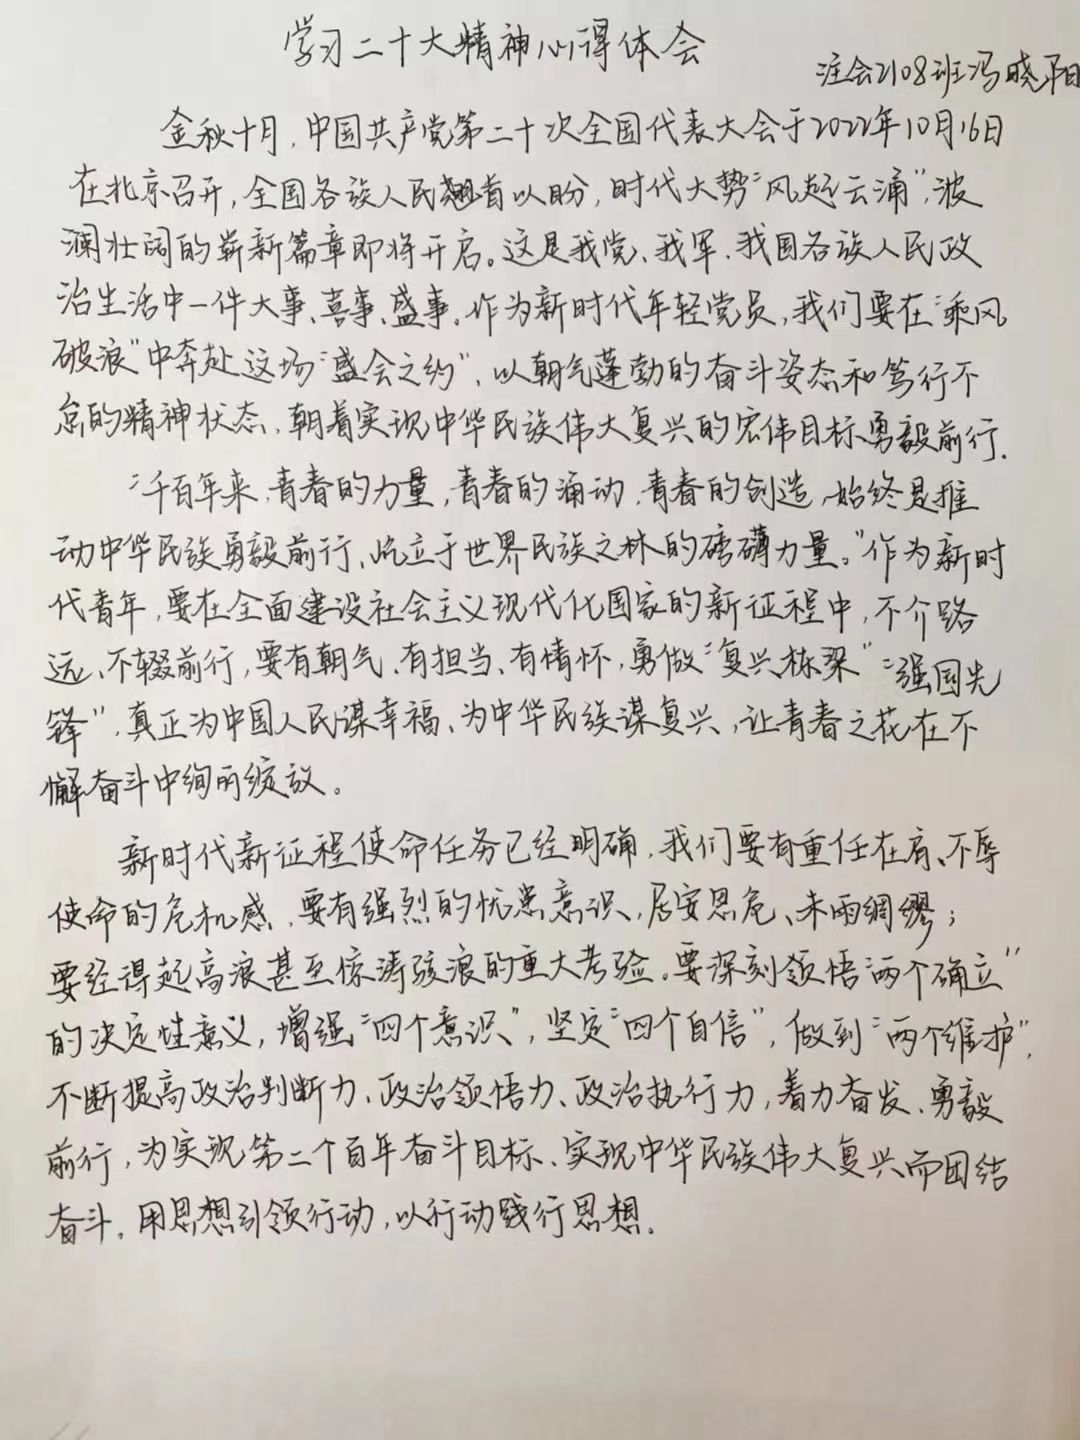 学习二十大精神心得体会
注会2108班冯晓阳
金秋十月，中国共产党第二十次全国代表大会于2022年10月16日
在北京召开，全国各族人民翘首以盼，时代大势“风起云涌”，波
澜壮阔的崭新篇章即将开启。这是我党、我军、我国各族人民政
治生活中一件大事、喜事、盛事。作为新时代年轻党员，我们要在“乘风
破浪”中奔赴这场“盛会之约”，以朝气蓬勃的奋斗姿态和笃行不
怠的精神状态，朝着实现中华民族伟大复兴的宏伟目标勇毅前行.
“千百年来，青春的力量，青春的涌动，青春的创造，始终是推
动中华民族勇毅前行、屹立于世界民族之林的磅礴力量。”作为新时
代青年，要在全面建设社会主义现代化国家的新征程中，不介路
远、不辍前行，要有朝气、有担当、有情怀，勇做“复兴栋梁”“强国先
锋”，真正为中国人民谋幸福、为中华民族谋复兴，让青春之花在不
懈奋斗中绚丽绽放。
新时代新征程使命任务已经明确，我们要有重任在肩、不辱
使命的危机感，要有强烈的忧患意识，居安思危、未雨绸缪；
要经得起高浪甚至惊涛骇浪的重大考验。要深刻领悟“两个确立”
的决定性意义，增强“四个意识”，坚定“四个自信”，做到“两个维护”，
不断提高政治判断力、政治领悟力、政治执行力，着力奋发、勇毅
前行，为实现第二个百年奋斗目标、实现中华民族伟大复兴而团结
奋斗。用思想引领行动，以行动践行思想.